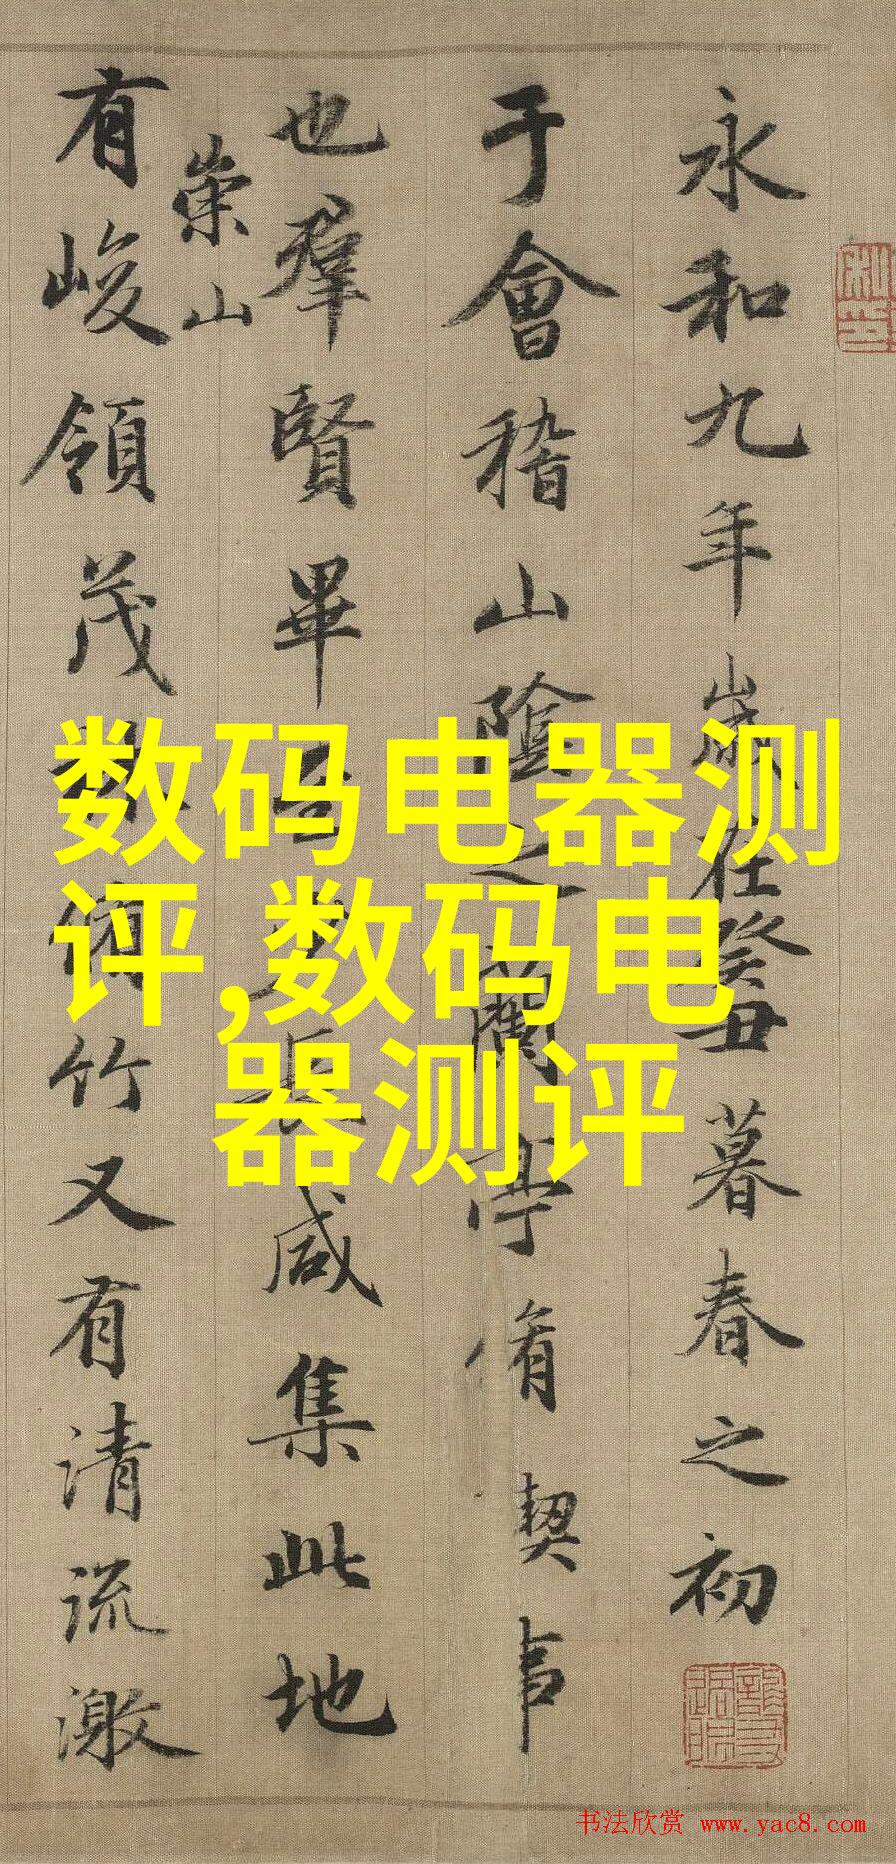 永和九年歲在癸丑暮春之初
于會稽山陰之蘭亭脩契事
也羣賢畢至少長咸集此地
崇山
有峻領茂林脩竹又有清流激
数码电器测
评,数码电
器测评
书法欣赏 www.yac8.com